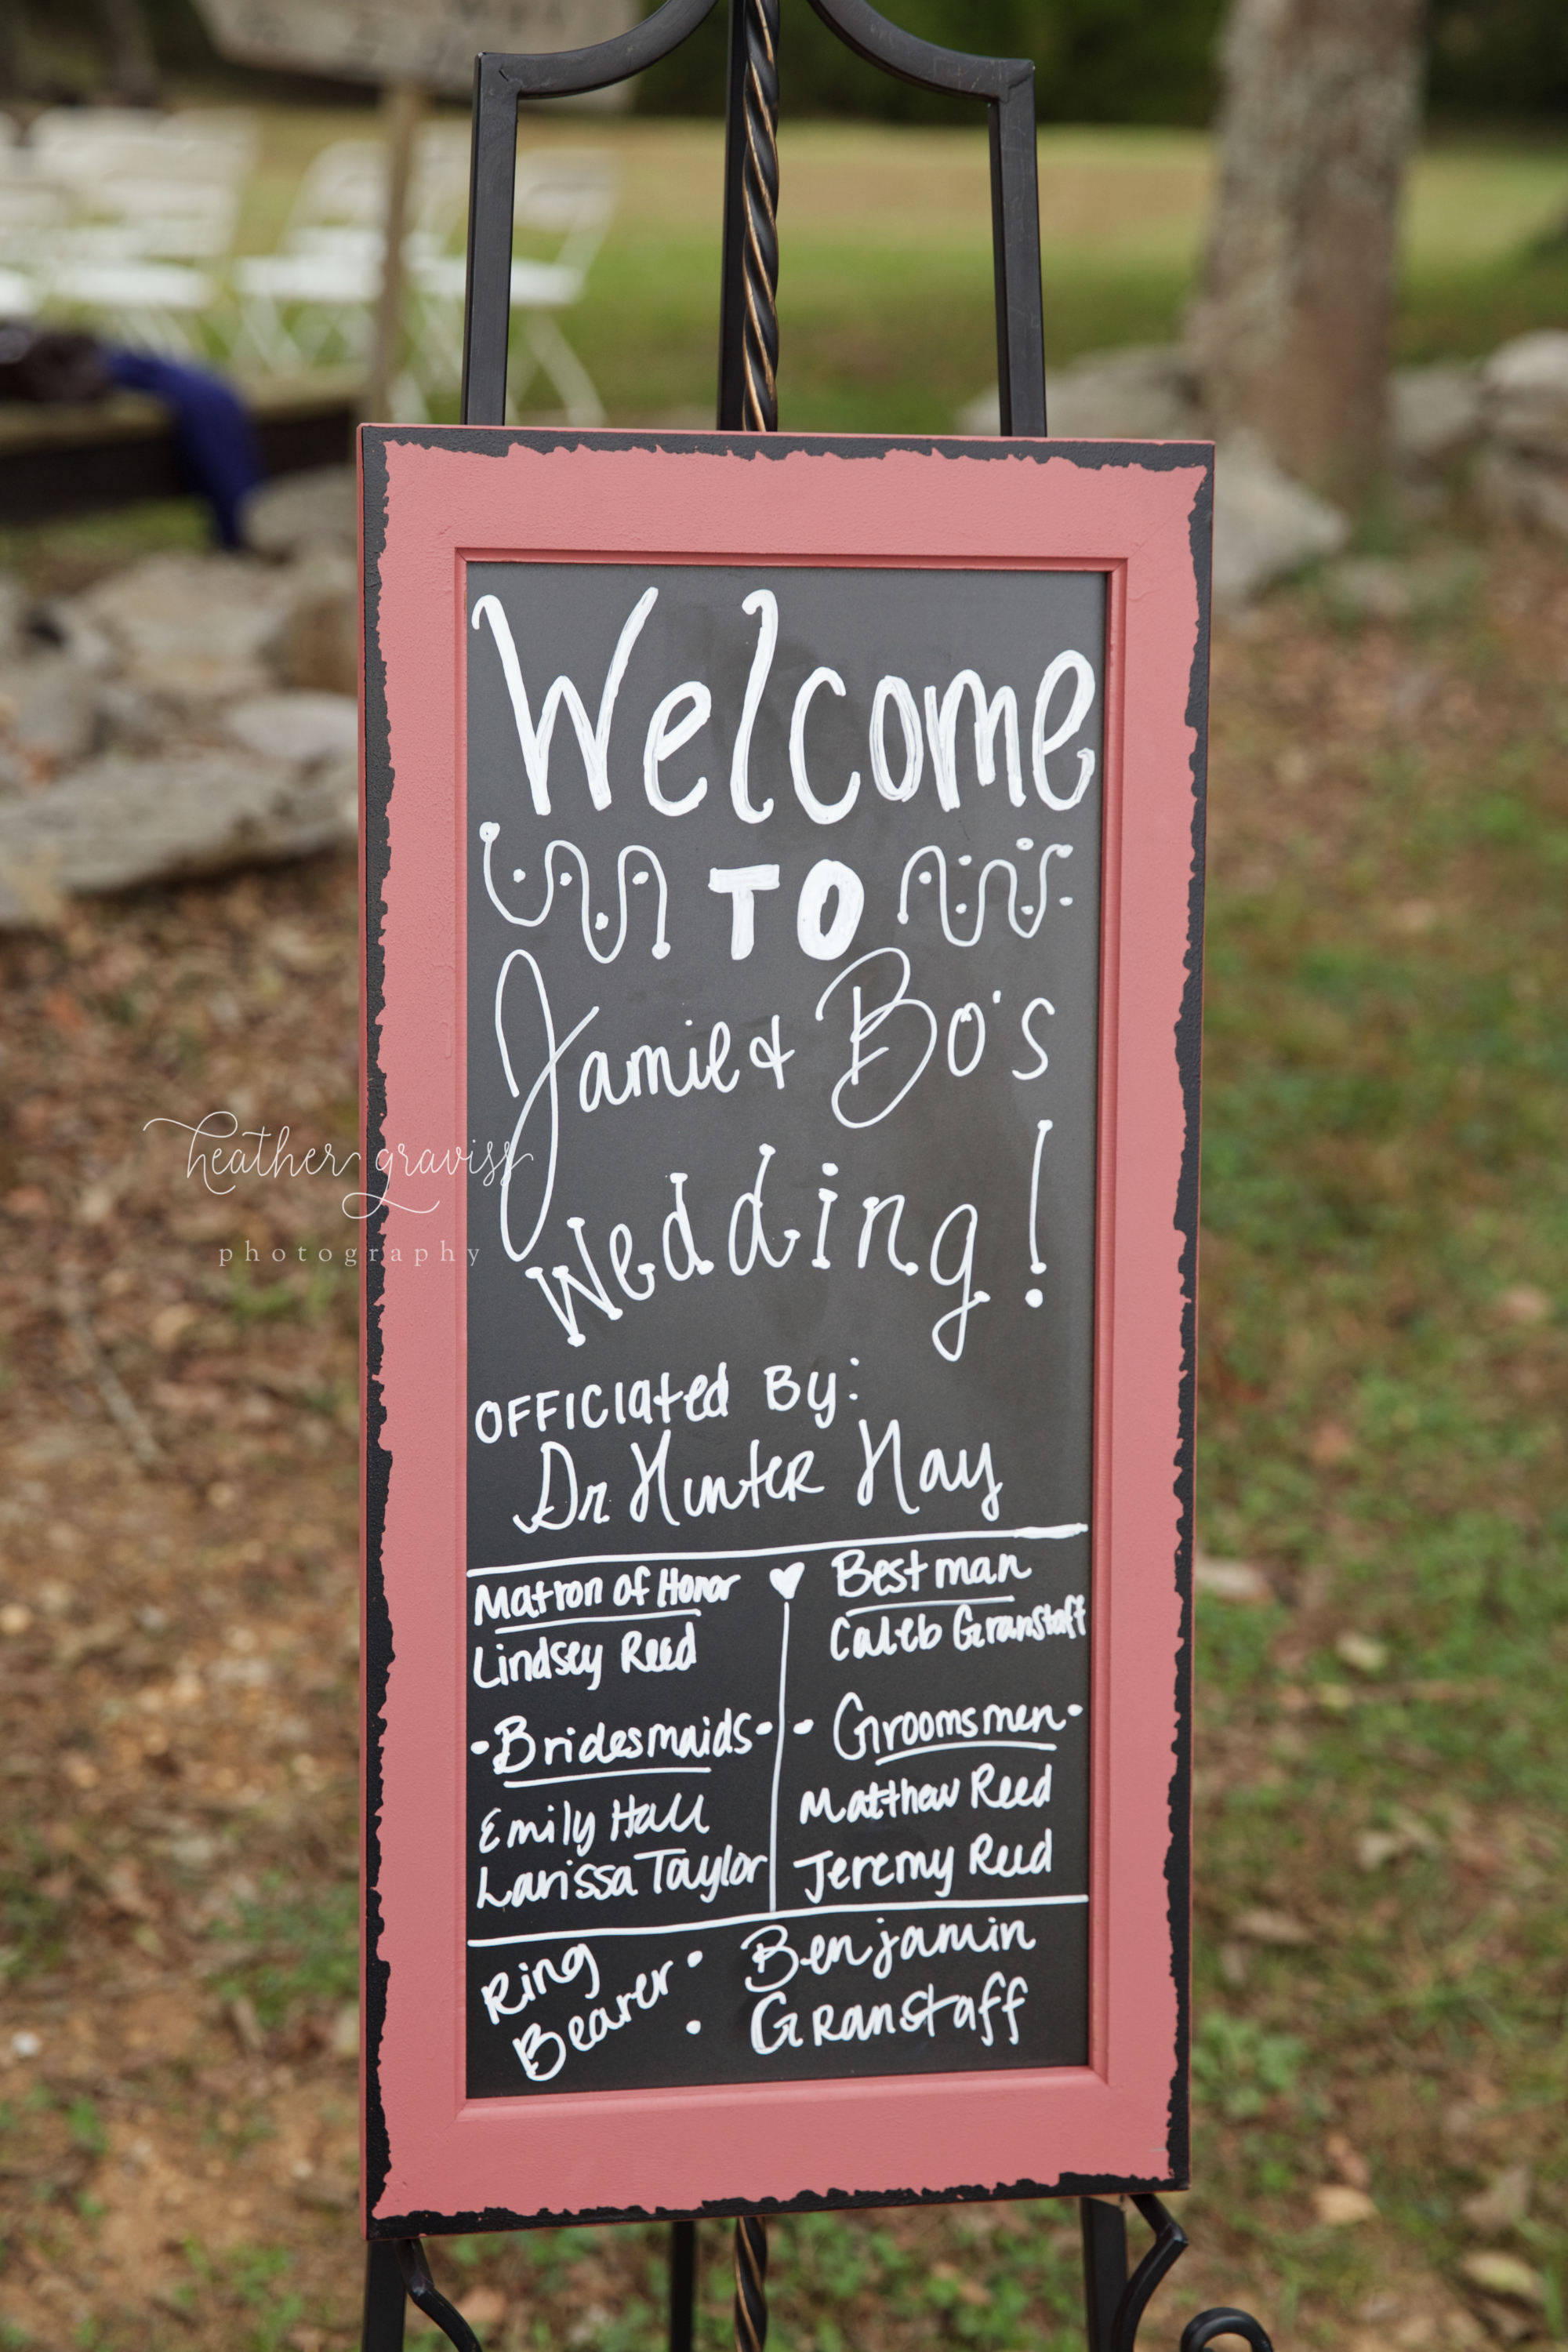 Welcome
TO
Jamie & Bo's
Wedding!
OFFICIATED By:
Dr Hunter Hay
Matron of Honor
Lindsey Reed
•Bridesmaids•
Emily Hall
Larissa Taylor
Best man
Caleb Granstaff
• Groomsmen•
Matthew Reed
Jeremy Reed
Ring
Bearer:
Benjamin
Granstaff
heather graviss
photography